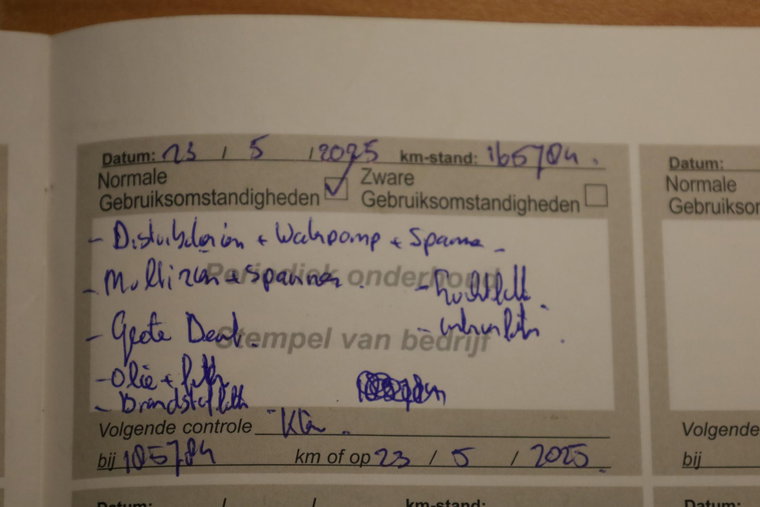 Datum: 23 / 5 / 2025 km-stand: 165784. Datum:
Normale Zware Normale
Gebruiksomstandigheden Gebruiksomstandigheden Gebruiksor
- Distributieriem + Waterpomp + Spanner -
- Multiriem + Spanner. - Luchtfilter.
Periodiek onderhoud
- Grote Beurt. - interieurfilter.
Stempel van bedrijf
- Olie + filter
- Brandstoffilter
Volgende controle Volgende
bij 185784 km of op 23 / 5 / 2025. bij
Datum: / / km-stand: Datum: